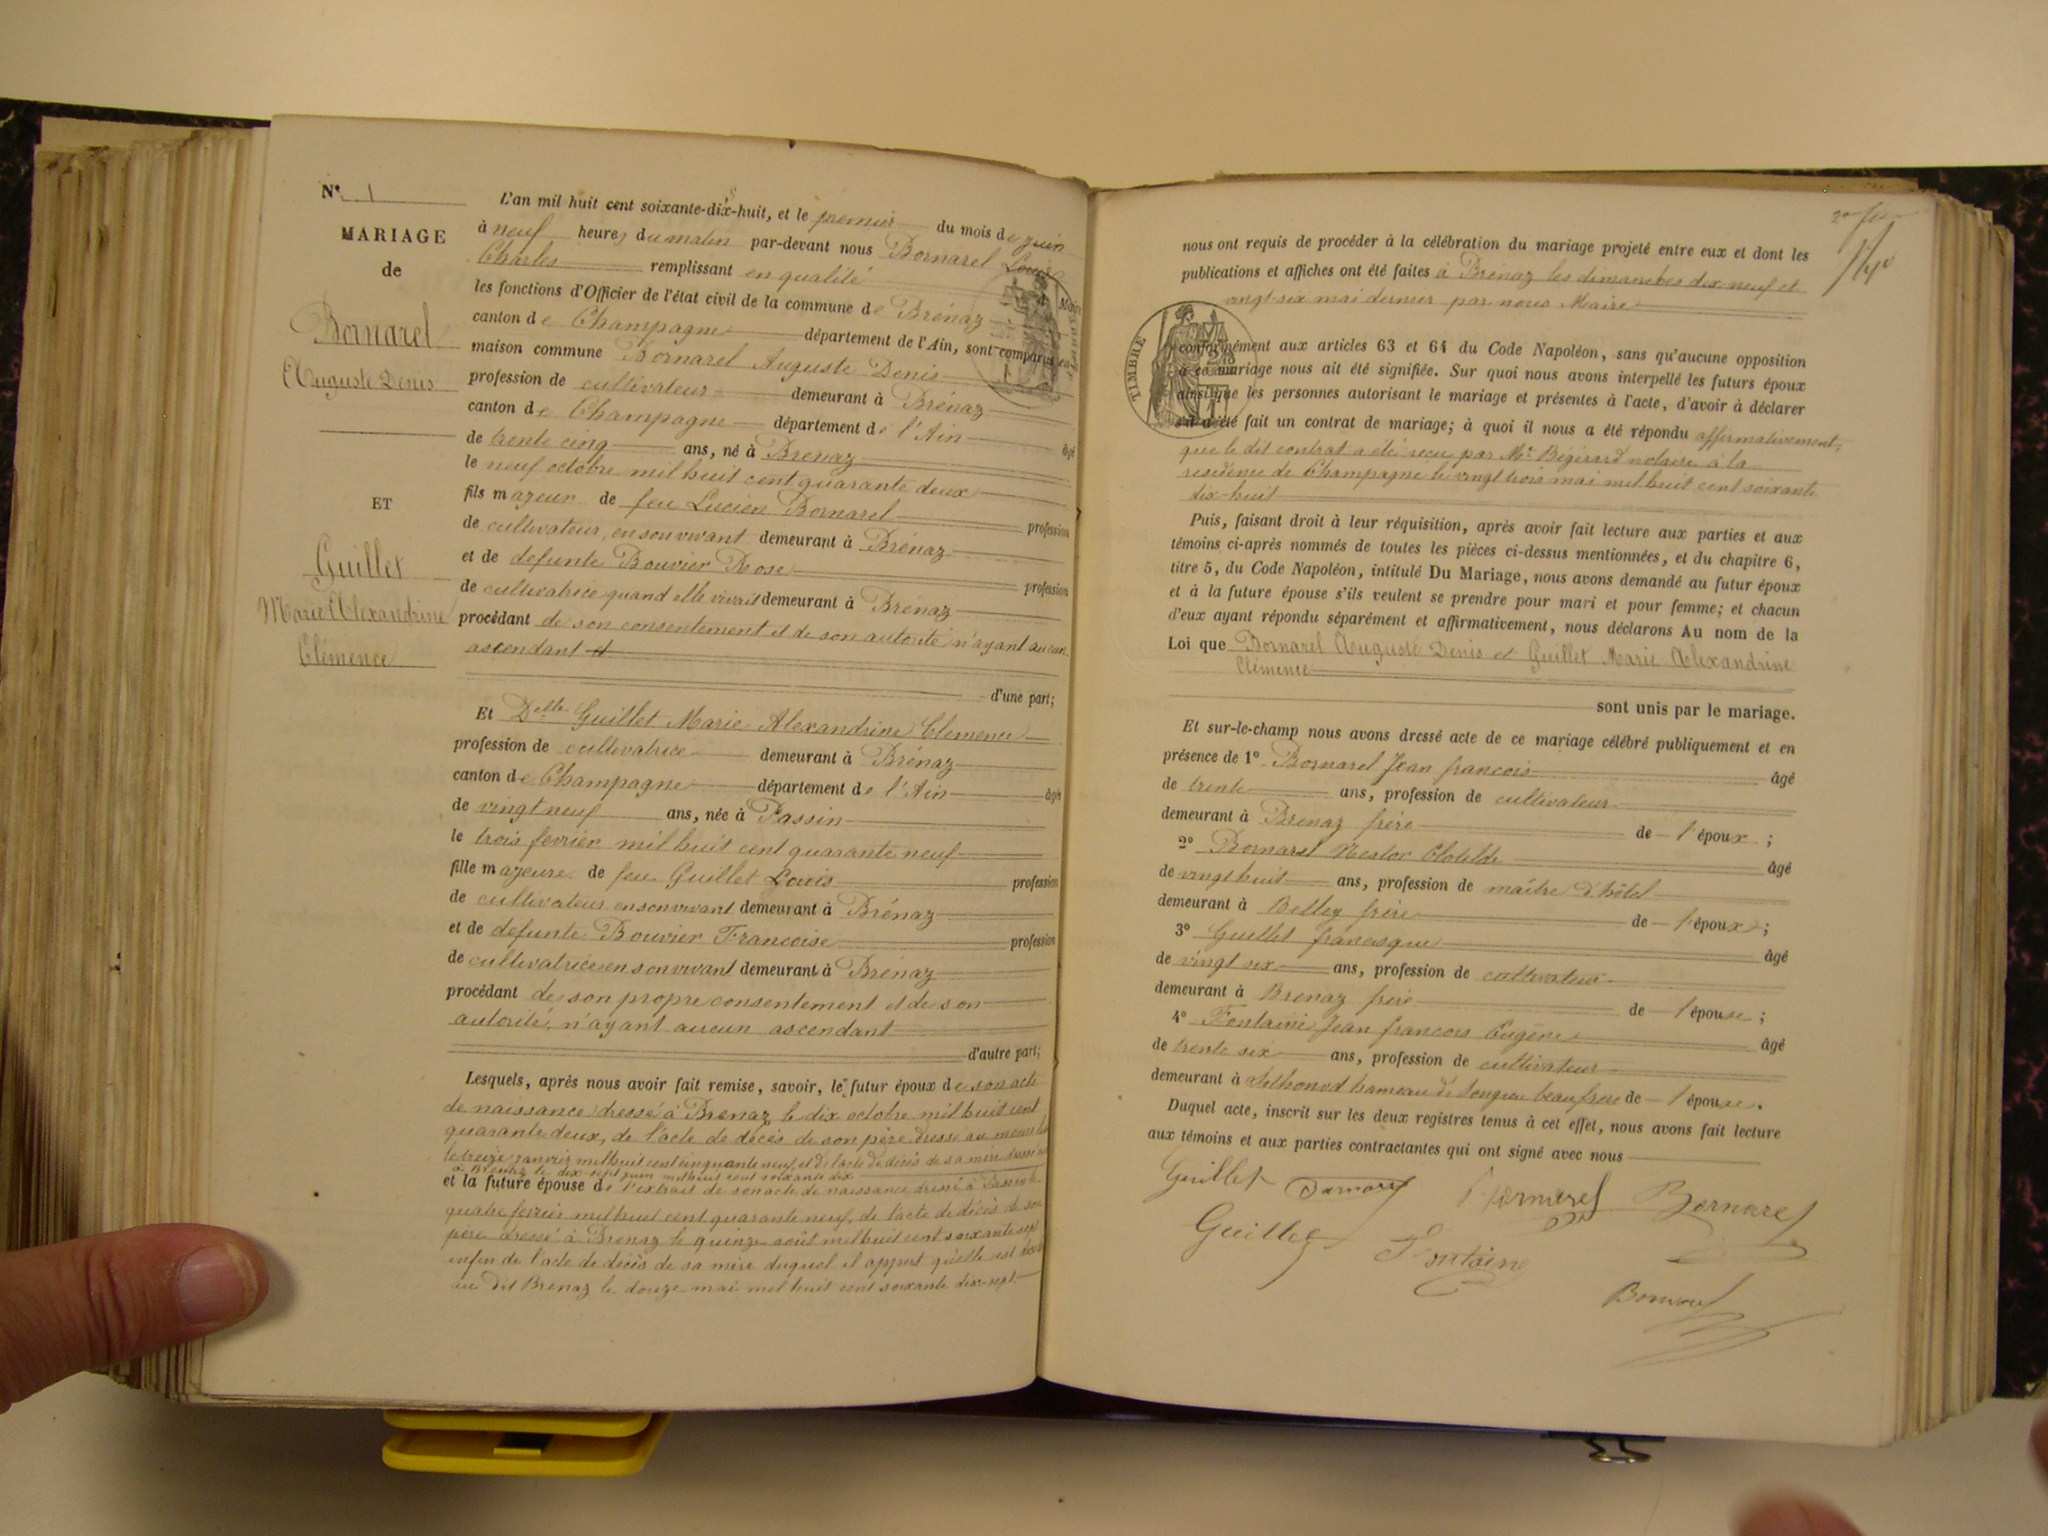 N° 1
MARIAGE
de
Bornarel
Auguste Denis
ET
Guillet
Marie Alexandrine
Clémence
L'an mil huit cent soixante-dix-huit, et le premier du mois de juin
à neuf heures du matin par-devant nous Bornarel Louis
Charles remplissant en qualité Maire
les fonctions d'Officier de l'état civil de la commune de Brénaz
canton de Champagne département de l'Ain, sont comparus
maison commune Bornarel Auguste Denis
profession de cultivateur demeurant à Brénaz
canton de Champagne département de l'Ain âgé
de trente cinq ans, né à Brénaz
le neuf octobre mil huit cent quarante deux
fils majeur de feu Lucien Bornarel profession
de cultivateur, en son vivant demeurant à Brénaz
et de defunte Bouvier Rose profession
de cultivatrice quand elle vivait demeurant à Brénaz
procédant de son consentement et de son autorité n'ayant aucun
ascendant et
d'une part;
Et Delle Guillet Marie Alexandrine Clemence
profession de cultivatrice demeurant à Brénaz
canton de Champagne département de l'Ain âgée
de vingt neuf ans, née à Passin
le trois fevrier mil huit cent quarante neuf
fille majeure de feu Guillet Louis profession
de cultivateur en son vivant demeurant à Brénaz
et de defunte Bouvier Francoise profession
de cultivatrice en son vivant demeurant à Brénaz
procédant de son propre consentement et de son
autorité, n'ayant aucun ascendant
d'autre part;
Lesquels, après nous avoir fait remise, savoir, le futur époux de son acte
de naissance dressé à Brenaz le dix octobre mil huit cent
quarante deux, de l'acte de décès de son père dressé au meme lieu
le treize janvier mil huit cent cinquante neuf, et de l'acte de décès de sa mere dressé
à Brenaz le dix sept juin mil huit cent soixante dix
et la future épouse de l'extrait de son acte de naissance dressé à Passin le
quatre fevrier mil huit cent quarante neuf, de l'acte de décès de son
père dressé à Brenaz le quinze août mil huit cent soixante sept
enfin de l'acte de décès de sa mère duquel il appert qu'elle est
au dit Brenaz le douze mai mil huit cent soixante dix-sept
nous ont requis de procéder à la célébration du mariage projeté entre eux et dont les
publications et affiches ont été faites à Brénaz les dimanches dix neuf et
vingt six mai dernier par nous Maire
TIMBRE
conformément aux articles 63 et 64 du Code Napoléon, sans qu'aucune opposition
à ce mariage nous ait été signifiée. Sur quoi nous avons interpellé les futurs époux
ainsi que les personnes autorisant le mariage et présentes à l'acte, d'avoir à déclarer
s'il a été fait un contrat de mariage; à quoi il nous a été répondu affirmativement,
que le dit contrat a été reçu par Me Bégérard notaire à la
residence de Champagne le vingt trois mai mil huit cent soixante
dix-huit
Puis, faisant droit à leur réquisition, après avoir fait lecture aux parties et aux
témoins ci-après nommés de toutes les pièces ci-dessus mentionnées, et du chapitre 6,
titre 5, du Code Napoléon, intitulé Du Mariage, nous avons demandé au futur époux
et à la future épouse s'ils veulent se prendre pour mari et pour femme; et chacun
d'eux ayant répondu séparément et affirmativement, nous déclarons Au nom de la
Loi que Bornarel Auguste Denis et Guillet Marie Alexandrine
Clémence
sont unis par le mariage.
Et sur-le-champ nous avons dressé acte de ce mariage célébré publiquement et en
présence de 1° Bornarel Jean francois âgé
de trente ans, profession de cultivateur
demeurant à Brenaz frère de l'époux ;
2° Bornarel Nestor Clotilde âgé
de vingt huit ans, profession de maître d'hôtel
demeurant à Belley frère de l'époux ;
3° Guillet francisque âgé
de vingt six ans, profession de cultivateur
demeurant à Brenaz frère de l'épouse ;
4° Fontaine Jean francois Eugène âgé
de trente six ans, profession de cultivateur
demeurant à hameau de Songieu beaufrere de l'épouse.
Duquel acte, inscrit sur les deux registres tenus à cet effet, nous avons fait lecture
aux témoins et aux parties contractantes qui ont signé avec nous
Guillet Bornarel Bornarel
Guillet Fontaine
Bornarel